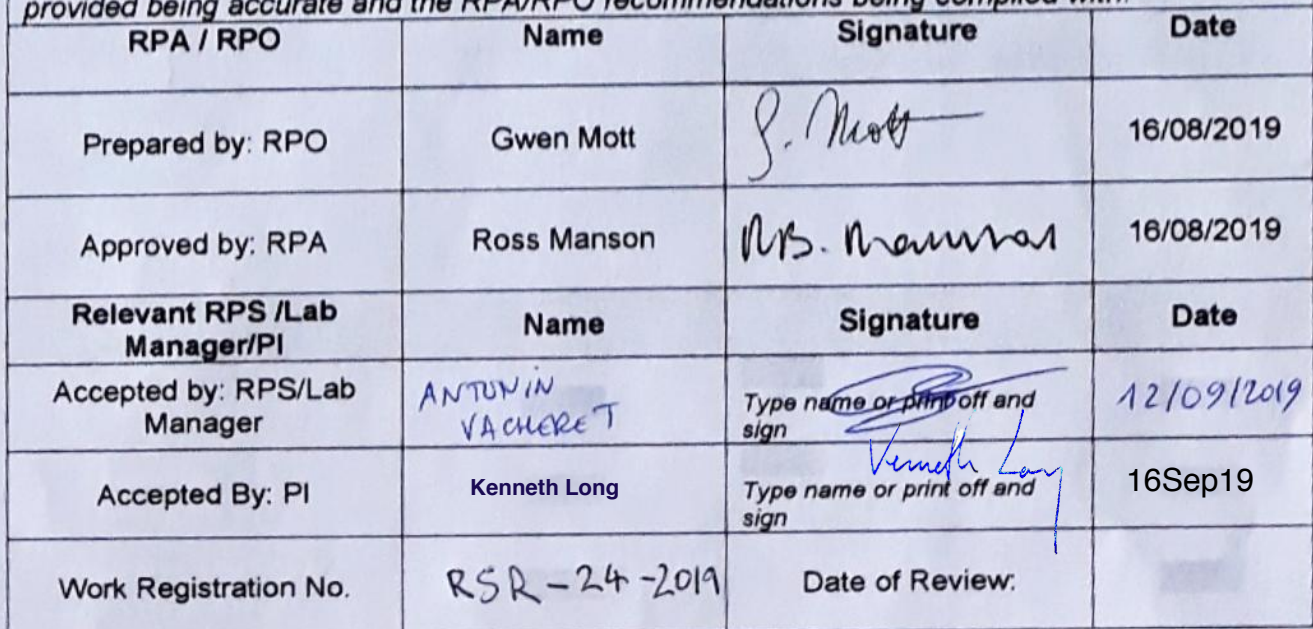 provided being accurate and the RPA/RPO recommendations being complied with.
RPA / RPO Name Signature Date
Prepared by: RPO Gwen Mott G. Mott 16/08/2019
Approved by: RPA Ross Manson RB. Manson 16/08/2019
Relevant RPS /Lab
Manager/PI Name Signature Date
Accepted by: RPS/Lab
Manager ANTONIN
VACHERET Type name or print off and
sign 12/09/2019
Accepted By: PI Kenneth Long Kenneth Long
Type name or print off and
sign 16Sep19
Work Registration No. RSR-24-2019 Date of Review: